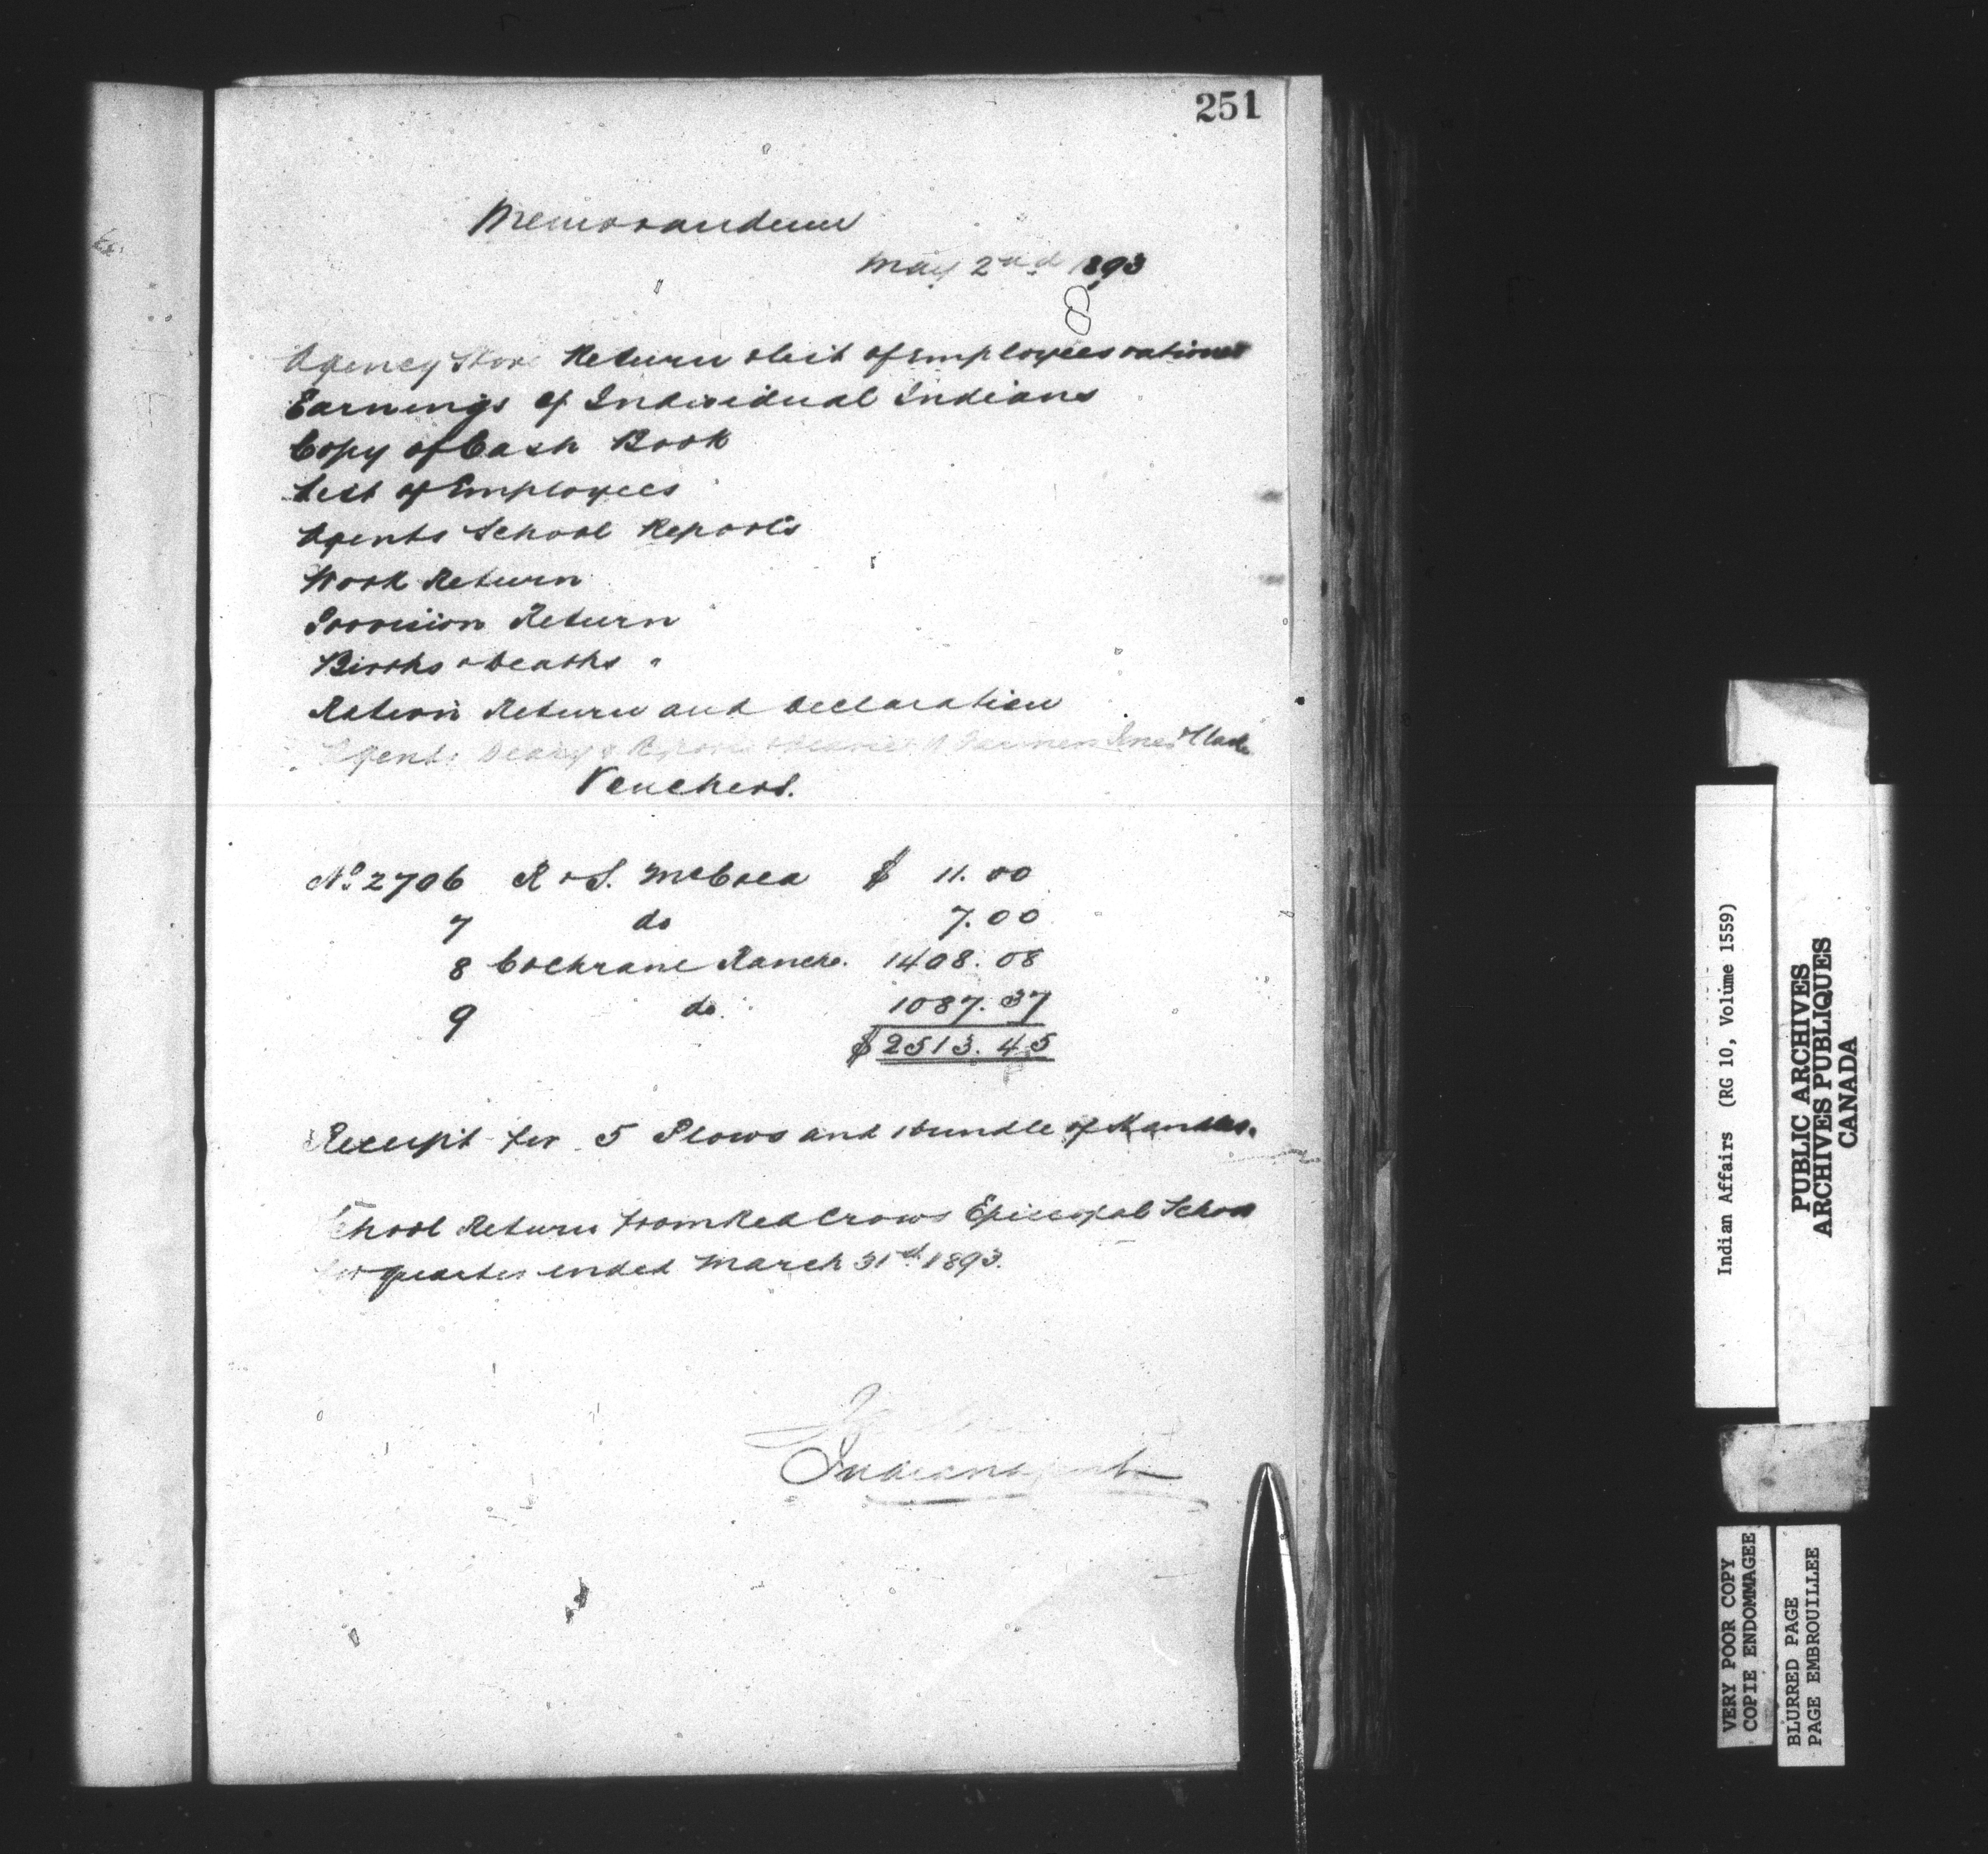 251
Memorandum
May 2nd 1893
Agency Store Return & list of Employees rationed
Earnings of Individual Indians
Copy of Cash Book
List of Employees
Agents School Reports
Work Return
Provision Return
Births & Deaths "
Ration Return and Declaration
Agents Diary & Report
Vouchers.
No 2706 R & S. McCrea $ 11.00
7 do 7.00
8 Cochrane Ranche. 1408.08
9 do. 1087.37
$ 2513.45
Receipt for 5 Plows and 1 bundle of Handles.
School Return from Red Crows Episcopal School
for quarter ended March 31st 1893.
Indian Agent
Indian Affairs (RG 10, Volume 1559)
PUBLIC ARCHIVES
ARCHIVES PUBLIQUES
CANADA
VERY POOR COPY
COPIE ENDOMMAGEE
BLURRED PAGE
PAGE EMBROUILLEE